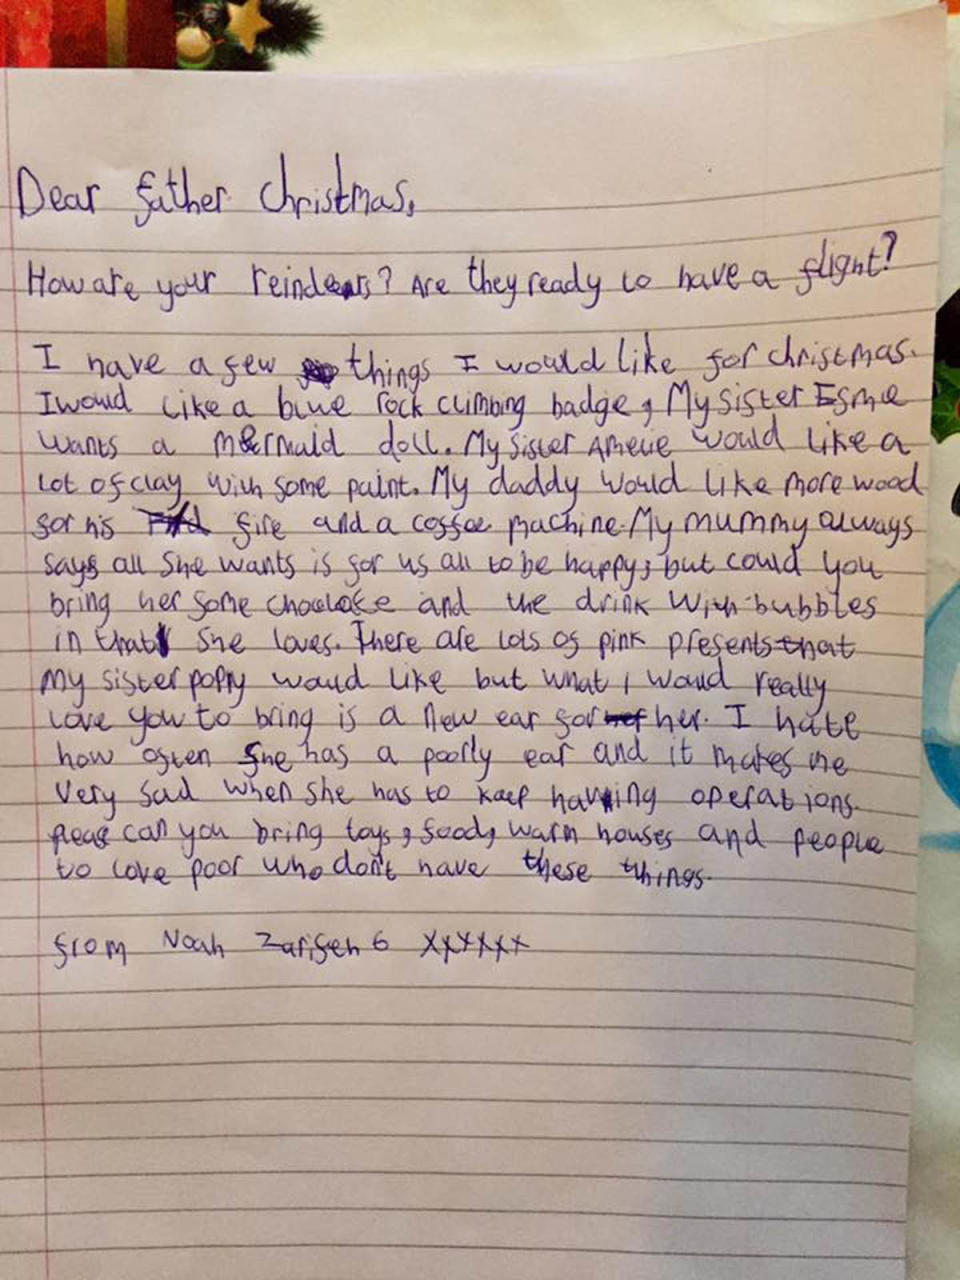 Dear father christmas,
How are your reindears? Are they ready to have a flight?
I have a few things I would like for christmas.
I would like a blue rock climbing badge, My sister Esme
wants a mermaid doll. My sister Amelie would like a
lot of clay with some paint. My daddy would like more wood
for his fire and a coffee machine. My mummy always
says all she wants is for us all to be happy, but could you
bring her some chocolate and the drink with bubbles
in that she loves. There are lots of pink presents that
my sister poppy would like but what I would really
love you to bring is a new ear for her. I hate
how often she has a poorly ear and it makes me
very sad when she has to keep having operations.
please can you bring toys, food, warm houses and people
to love poor who don't have these things.
from Noah 6 xxxxxx